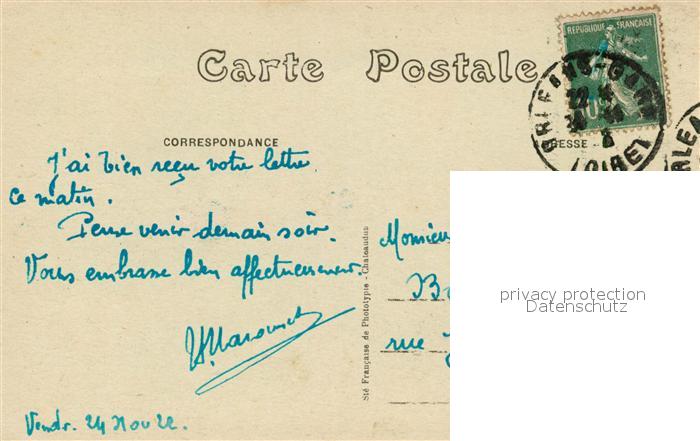 Carte Postale
REPUBLIQUE FRANÇAISE
ORLEANS-GARE
LOIRET
CORRESPONDANCE
J'ai bien reçu votre lettre
ce matin.
Pense venir demain soir.
Vous embrasse bien affectueusement
Vendr. 24 Nov 22.
Sté Française de Phototypie - Chateaudun
Monsieur
rue
privacy protection
Datenschutz